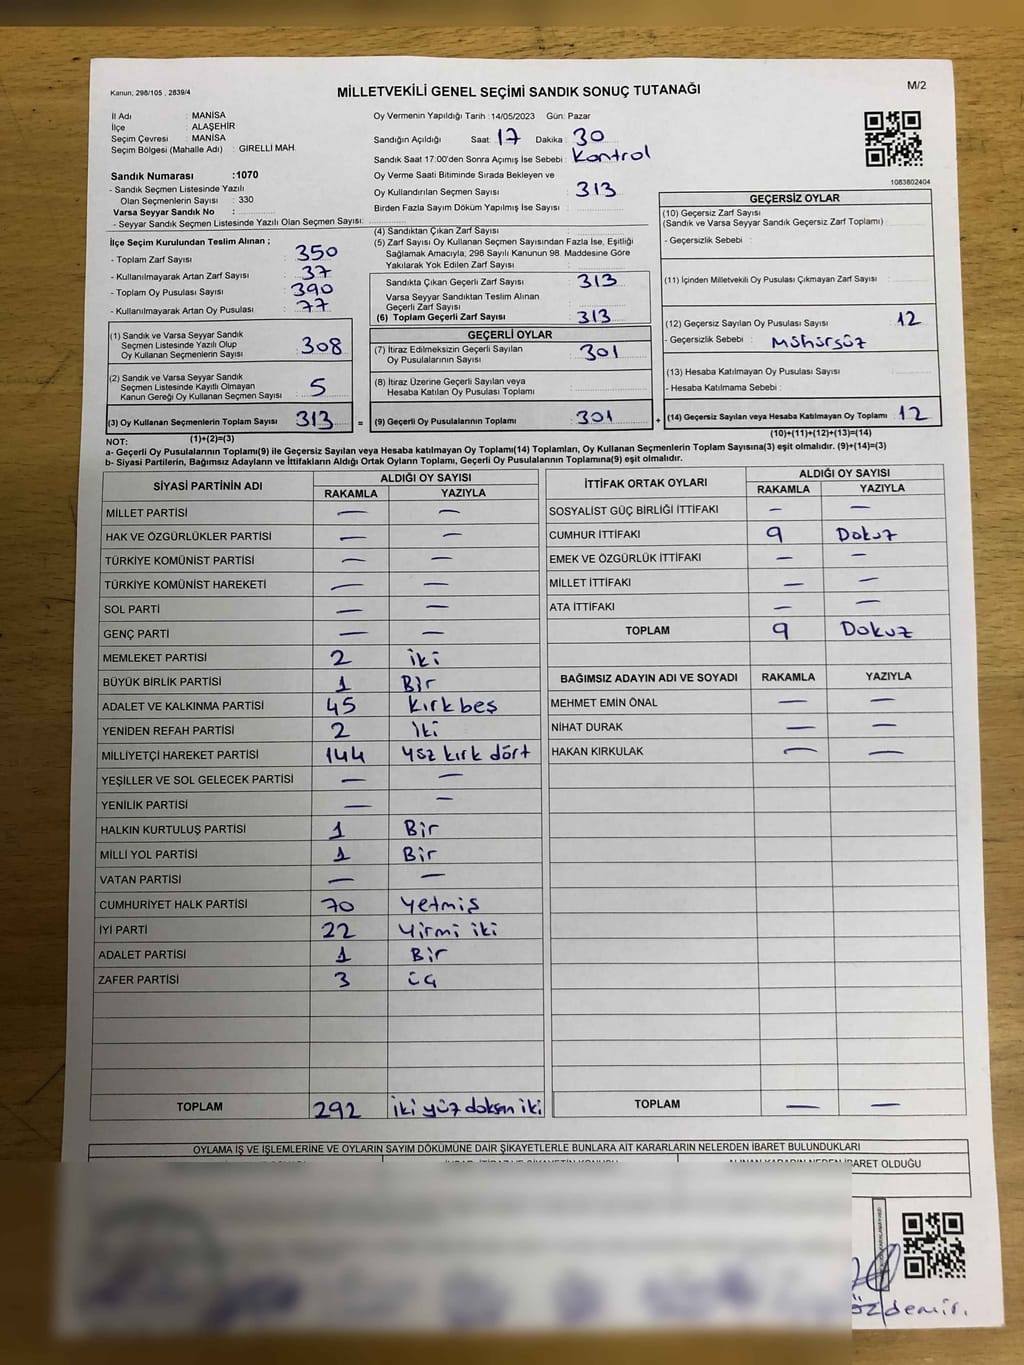 Kanun, 298/105 , 2839/4
MİLLETVEKİLİ GENEL SEÇİMİ SANDIK SONUÇ TUTANAĞI
M/2
İl Adı : MANİSA
İlçe : ALAŞEHİR
Seçim Çevresi : MANİSA
Seçim Bölgesi (Mahalle Adı) : GİRELLİ MAH.
Sandık Numarası :1070
- Sandık Seçmen Listesinde Yazılı
Olan Seçmenlerin Sayısı : 330
Varsa Seyyar Sandık No :
- Seyyar Sandık Seçmen Listesinde Yazılı Olan Seçmen Sayısı:
Oy Vermenin Yapıldığı Tarih :14/05/2023 Gün: Pazar
Sandığın Açıldığı Saat: 17 Dakika : 30
Sandık Saat 17:00'den Sonra Açımış İse Sebebi : Kontrol
Oy Verme Saati Bitiminde Sırada Bekleyen ve
Oy Kullandırılan Seçmen Sayısı : 313
Birden Fazla Sayım Döküm Yapılmış İse Sayısı :
1083802404
İlçe Seçim Kurulundan Teslim Alınan ;
- Toplam Zarf Sayısı : 350
- Kullanılmayarak Artan Zarf Sayısı : 37
- Toplam Oy Pusulası Sayısı : 390
- Kullanılmayarak Artan Oy Pusulası : 77
(1) Sandık ve Varsa Seyyar Sandık
Seçmen Listesinde Yazılı Olup
Oy Kullanan Seçmenlerin Sayısı : 308
(2) Sandık ve Varsa Seyyar Sandık
Seçmen Listesinde Kayıtlı Olmayan
Kanun Gereği Oy Kullanan Seçmen Sayısı : 5
(3) Oy Kullanan Seçmenlerin Toplam Sayısı : 313
(1)+(2)=(3)
(4) Sandıktan Çıkan Zarf Sayısı :
(5) Zarf Sayısı Oy Kullanan Seçmen Sayısından Fazla İse, Eşitliği
Sağlamak Amacıyla; 298 Sayılı Kanunun 98. Maddesine Göre
Yakılarak Yok Edilen Zarf Sayısı :
Sandıkta Çıkan Geçerli Zarf Sayısı : 313
Varsa Seyyar Sandıktan Teslim Alınan
Geçerli Zarf Sayısı :
(6) Toplam Geçerli Zarf Sayısı : 313
GEÇERLİ OYLAR
(7) İtiraz Edilmeksizin Geçerli Sayılan
Oy Pusulalarının Sayısı : 301
(8) İtiraz Üzerine Geçerli Sayılan veya
Hesaba Katılan Oy Pusulası Toplamı :
= (9) Geçerli Oy Pusulalarının Toplamı : 301
GEÇERSİZ OYLAR
(10) Geçersiz Zarf Sayısı
(Sandık ve Varsa Seyyar Sandık Geçersiz Zarf Toplamı) :
- Geçersizlik Sebebi :
(11) İçinden Milletvekili Oy Pusulası Çıkmayan Zarf Sayısı :
(12) Geçersiz Sayılan Oy Pusulası Sayısı : 12
- Geçersizlik Sebebi : Mühürsüz
(13) Hesaba Katılmayan Oy Pusulası Sayısı :
- Hesaba Katılmama Sebebi :
+ (14) Geçersiz Sayılan veya Hesaba Katılmayan Oy Toplamı : 12
(10)+(11)+(12)+(13)=(14)
NOT:
a- Geçerli Oy Pusulalarının Toplamı(9) ile Geçersiz Sayılan veya Hesaba katılmayan Oy Toplamı(14) Toplamları, Oy Kullanan Seçmenlerin Toplam Sayısına(3) eşit olmalıdır. (9)+(14)=(3)
b- Siyasi Partilerin, Bağımsız Adayların ve İttifakların Aldığı Ortak Oyların Toplamı, Geçerli Oy Pusulalarının Toplamına(9) eşit olmalıdır.
SİYASİ PARTİNİN ADI ALDIĞI OY SAYISI
RAKAMLA YAZIYLA
MİLLET PARTİSİ — —
HAK VE ÖZGÜRLÜKLER PARTİSİ — —
TÜRKİYE KOMÜNİST PARTİSİ — —
TÜRKİYE KOMÜNİST HAREKETİ — —
SOL PARTİ — —
GENÇ PARTİ — —
MEMLEKET PARTİSİ 2 iki
BÜYÜK BİRLİK PARTİSİ 1 Bir
ADALET VE KALKINMA PARTİSİ 45 kırk beş
YENİDEN REFAH PARTİSİ 2 iki
MİLLİYETÇİ HAREKET PARTİSİ 144 yüz kırk dört
YEŞİLLER VE SOL GELECEK PARTİSİ — —
YENİLİK PARTİSİ — —
HALKIN KURTULUŞ PARTİSİ 1 Bir
MİLLİ YOL PARTİSİ 1 Bir
VATAN PARTİSİ — —
CUMHURİYET HALK PARTİSİ 70 yetmiş
İYİ PARTİ 22 yirmi iki
ADALET PARTİSİ 1 Bir
ZAFER PARTİSİ 3 üç
TOPLAM 292 iki yüz doksan iki
İTTİFAK ORTAK OYLARI ALDIĞI OY SAYISI
RAKAMLA YAZIYLA
SOSYALİST GÜÇ BİRLİĞİ İTTİFAKI — —
CUMHUR İTTİFAKI 9 Dokuz
EMEK VE ÖZGÜRLÜK İTTİFAKI — —
MİLLET İTTİFAKI — —
ATA İTTİFAKI — —
TOPLAM 9 Dokuz
BAĞIMSIZ ADAYIN ADI VE SOYADI RAKAMLA YAZIYLA
MEHMET EMİN ÖNAL — —
NİHAT DURAK — —
HAKAN KIRKULAK — —
TOPLAM — —
OYLAMA İŞ VE İŞLEMLERİNE VE OYLARIN SAYIM DÖKÜMÜNE DAİR ŞİKAYETLERLE BUNLARA AİT KARARLARIN NELERDEN İBARET BULUNDUKLARI
İBARET OLDUĞU
Özdemir.